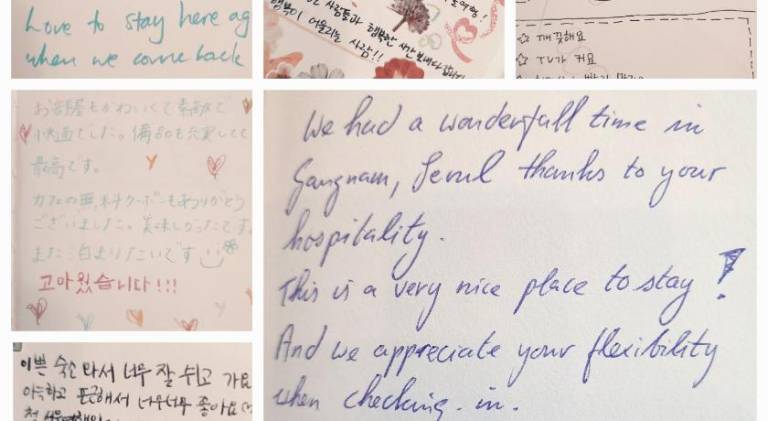 Love to stay here ag
when we come back
행복이 어울리는 사람!!
☆ 깨끗해요
☆ TV가 커요
お部屋もかわいくて素敵で
快適でした。備品も充実してて
最高です。
カフェの無料クーポンもありがとう
ございました。美味しかったです。
また泊まりたいです
고마웠습니다!!!
We had a wonderfull time in
Gangnam, Seoul thanks to your
hospitality.
This is a very nice place to stay!
And we appreciate your flexibility
when checking-in.
이쁜 숙소 와서 너무 잘 쉬고 가요
아늑하고 포근해서 너무너무 좋아요
첫